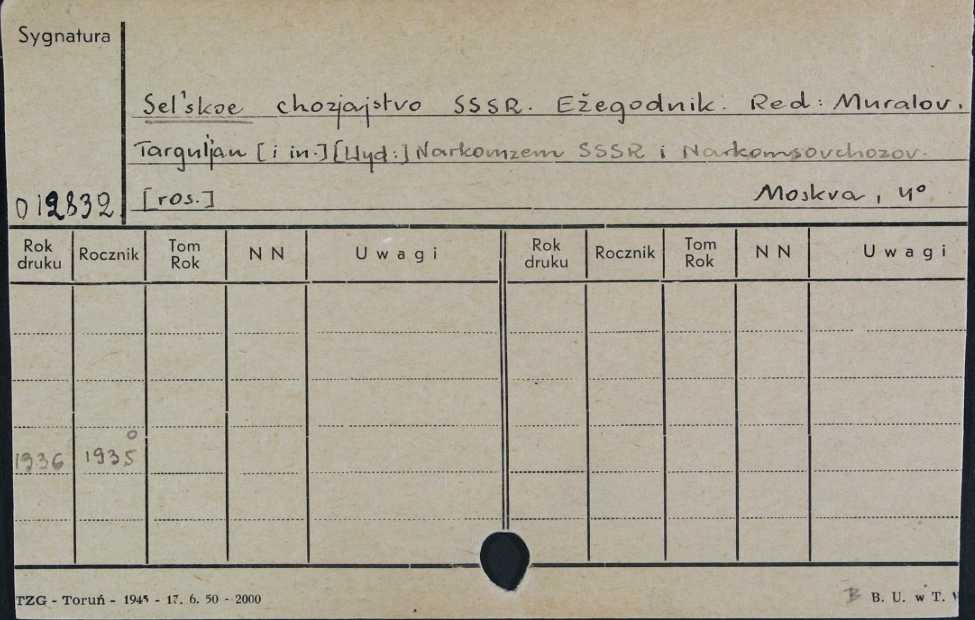 Sygnatura
Sel'skoe chozjajstvo SSSR. Ežegodnik. Red: Muralov,
Targuljan [i in.] [Wyd:] Narkomzem SSSR i Narkomsovchozov.
012832 [ros.] Moskva, 4°
Rok druku Rocznik Tom Rok NN Uwagi Rok druku Rocznik Tom Rok NN Uwagi
1936 1935°
TZG - Toruń - 1945 - 17. 6. 50 - 2000 B B. U. w T.